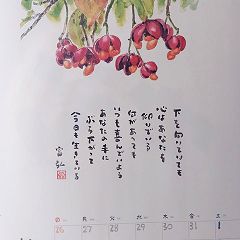 下を向いていても
心はあなたを
仰いでいる
何があっても
いつも喜んでいよう
あなたの手に
ぶら下がって
今日も生きている
富弘
日 月 火 水 木 金 土
26 27 28 29 30 31 1